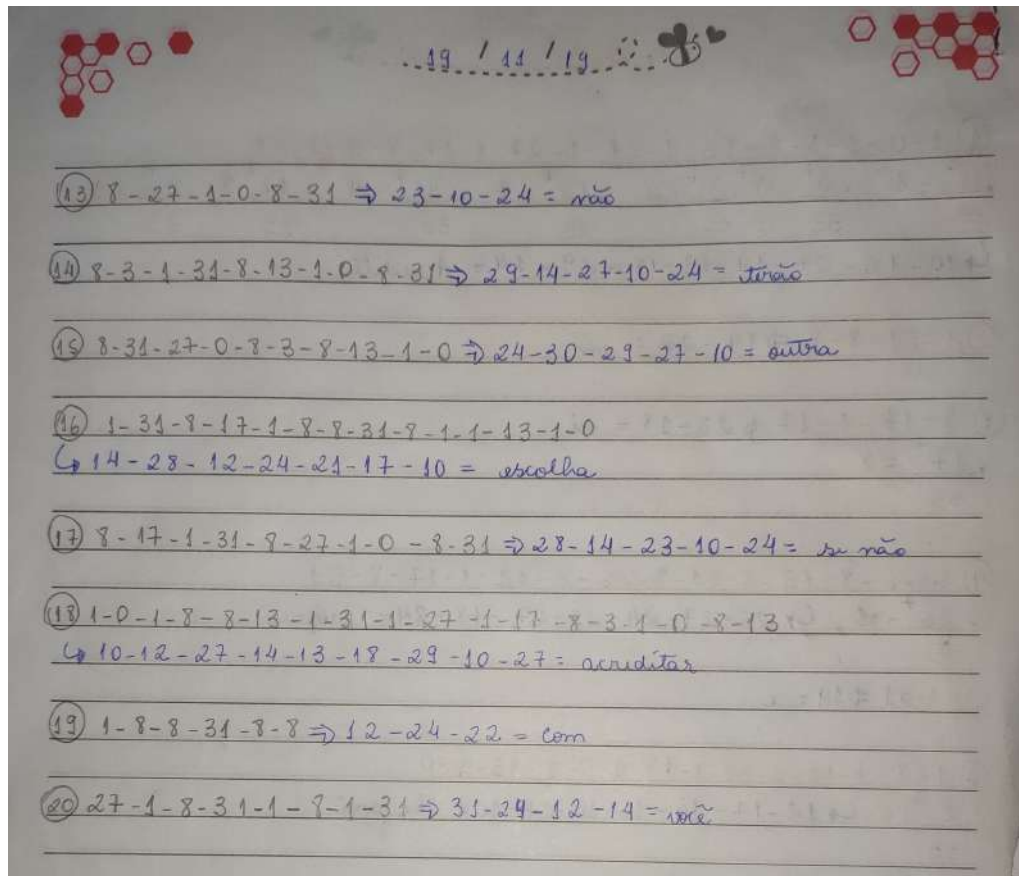 19 / 11 / 19
(13) 8-27-1-0-8-31 ⇒ 23-10-24 = não
(14) 8-3-1-31-8-13-1-0-8-31 ⇒ 29-14-27-10-24 = terão
(15) 8-31-27-0-8-3-8-13-1-0 ⇒ 24-30-29-27-10 = outra
(16) 1-31-8-17-1-8-8-31-8-1-1-13-1-0
↳ 14-28-12-24-21-17-10 = escolha
(17) 8-17-1-31-8-27-1-0-8-31 ⇒ 28-14-23-10-24 = se não
(18) 1-0-1-8-8-13-1-31-1-27-1-17-8-3-1-0-8-13
↳ 10-12-27-14-13-18-29-10-27 = acreditar
(19) 1-8-8-31-8-8 ⇒ 12-24-22 = com
(20) 27-1-8-31-1-8-1-31 ⇒ 31-24-12-14 = você